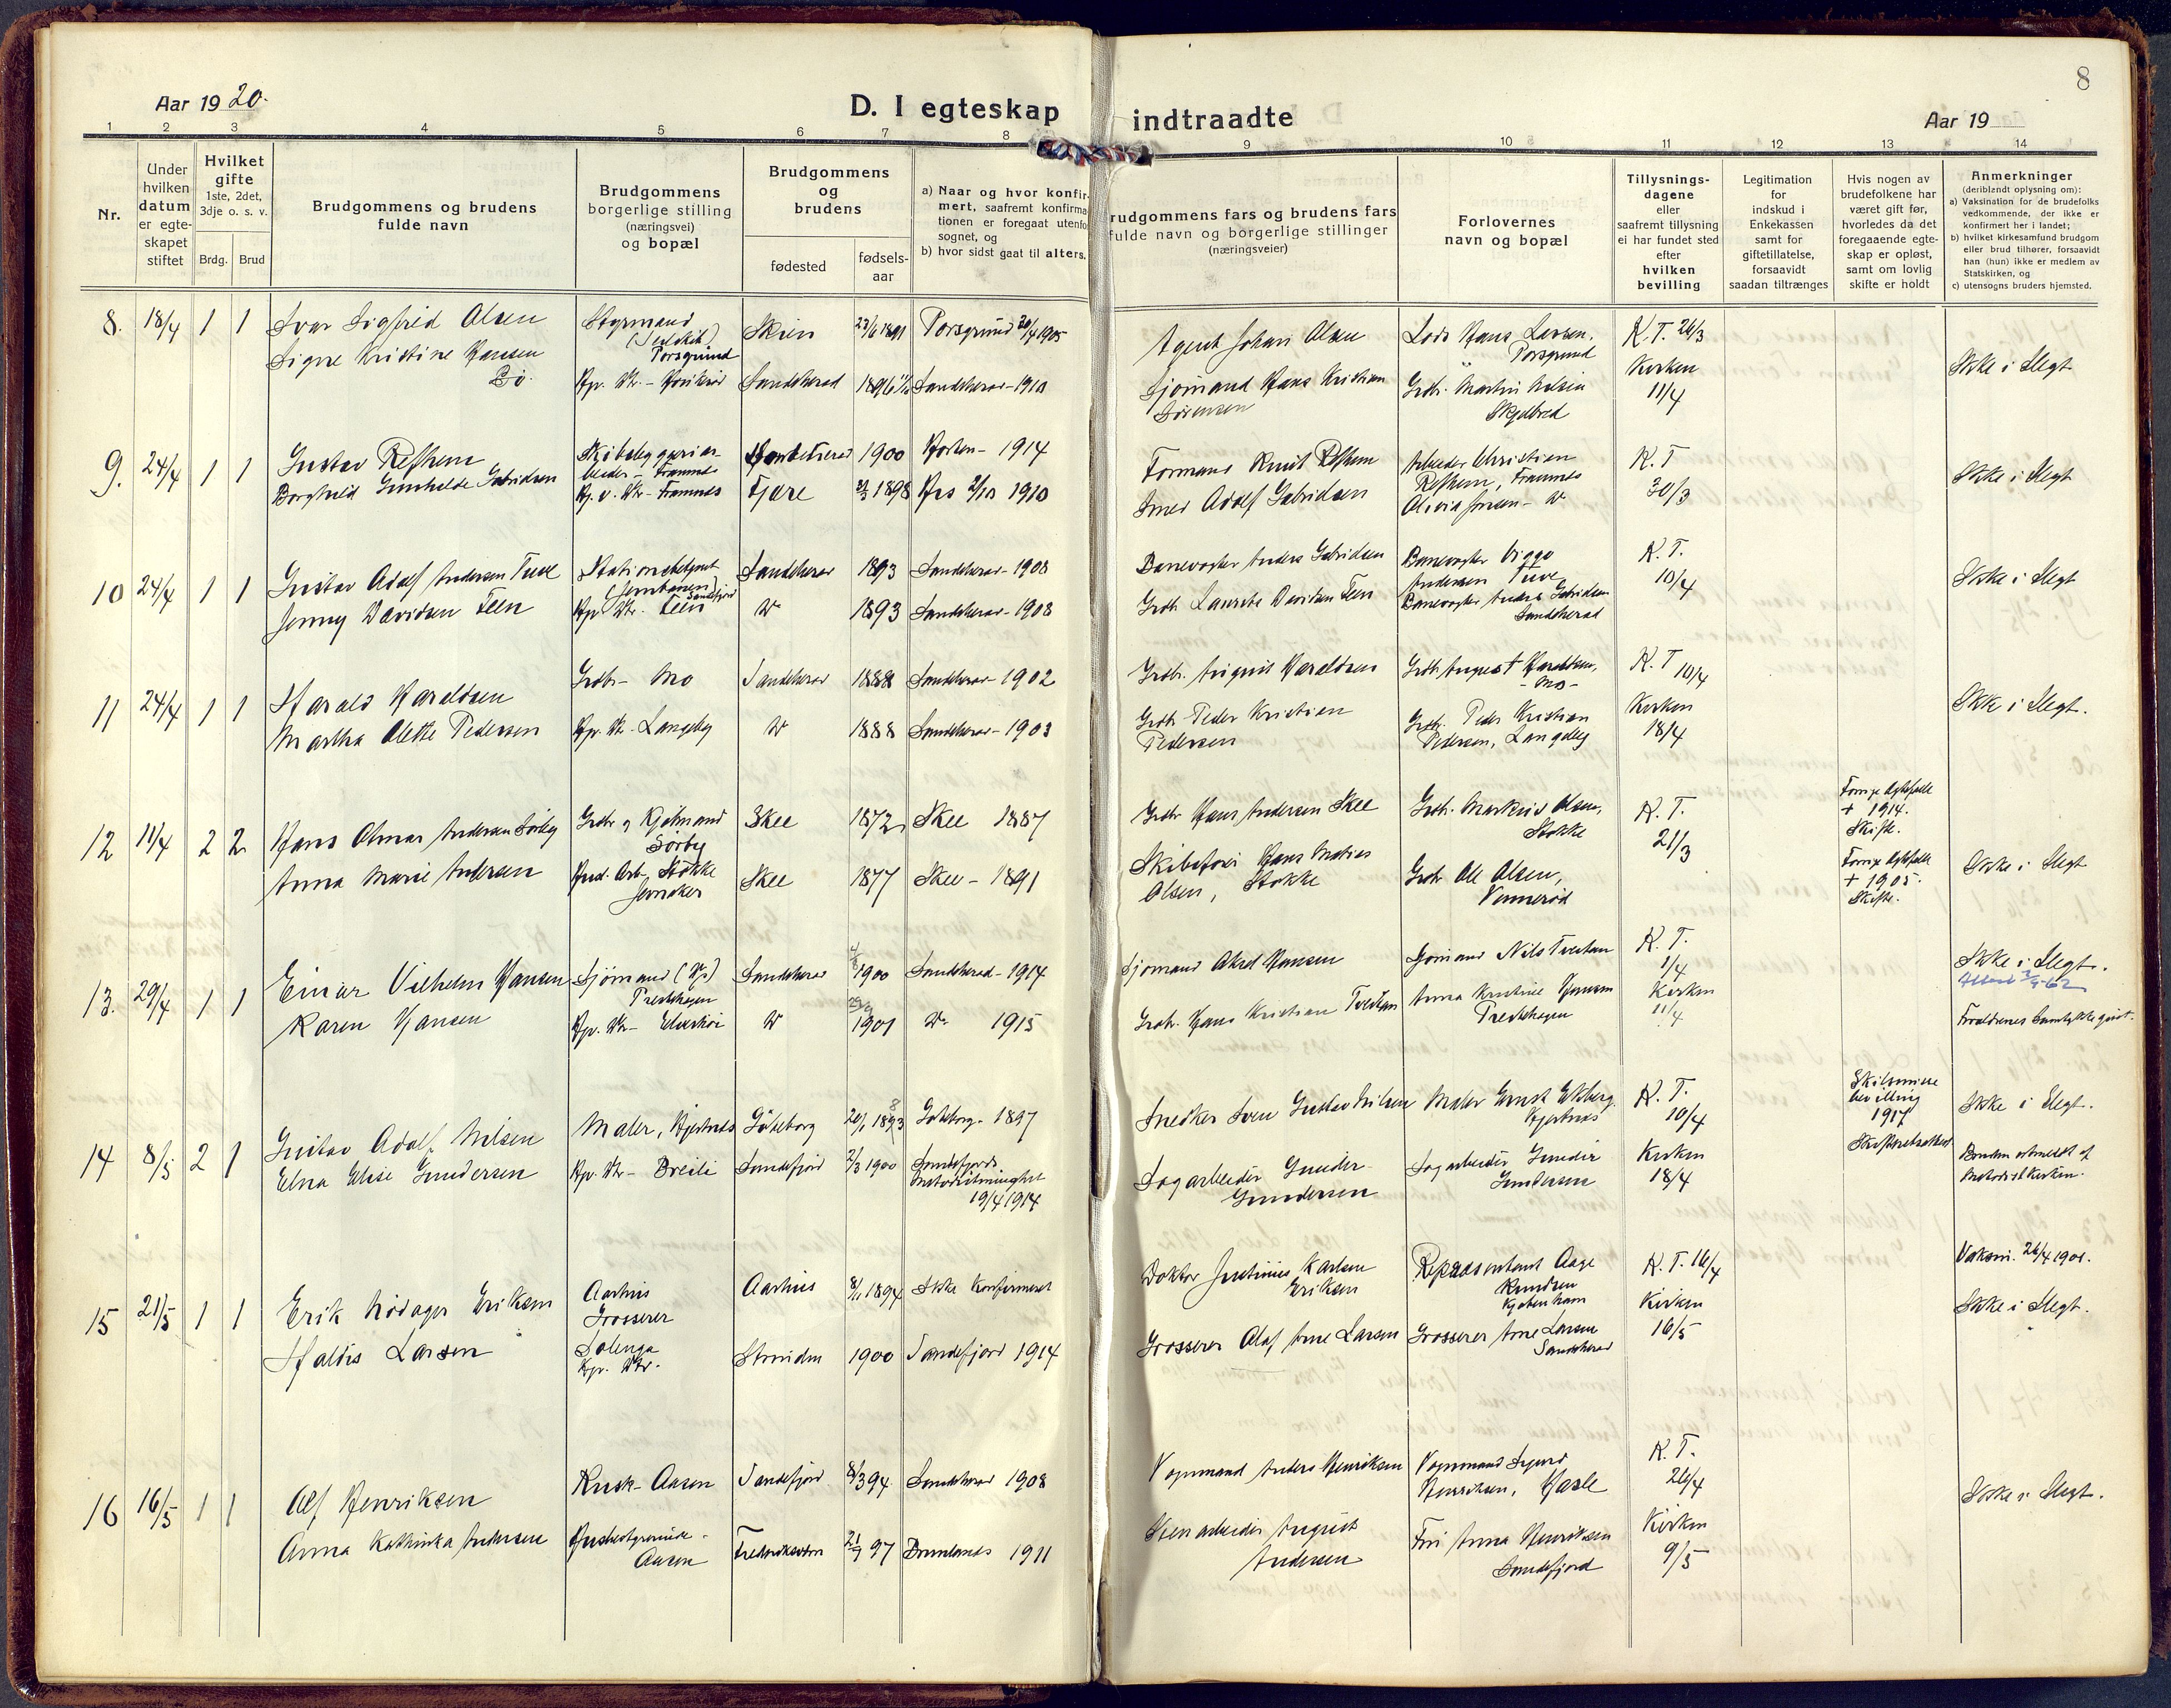 8
Aar 1920.
D. I egteskap
indtraadte
Aar 19
1
2
3
4
5
6
7
8
9
10
11
12
13
14
Nr.
Under
hvilken
datum
er egte-
skapet
stiftet
Hvilket
gifte
1ste, 2det,
3dje o. s. v.
Brdg.
Brud
Brudgommens og brudens
fulde navn
Brudgommens
borgerlige stilling
(næringsvei)
og bopæl
Brudgommens
og
brudens
fødested
fødsels-
aar
a) Naar og hvor konfir-
mert, saafremt konfirma
tionen er foregaat utenfo
sognet, og
b) hvor sidst gaat til alters.
rudgommens fars og brudens fars
fulde navn og borgerlige stillinger
(næringsveier)
Forlovernes
navn og bopæl
Tillysnings-
dagene
eller
saafremt tillysning
ei har fundet sted
efter
hvilken
bevilling
Legitimation
for
indskud i
Enkekassen
samt for
giftetillatelse,
forsaavidt
saadan tiltrænges
Hvis nogen av
brudefolkene har
været gift før,
hvorledes da det
foregaaende egte-
skap er opløst,
samt om lovlig
skifte er holdt
Anmerkninger
(deriblandt oplysning om):
a) Vaksination for de brudefolks
vedkommende, der ikke er
konfirmert her i landet;
b) hvilket kirkesamfund brudgom
eller brud tilhører, forsaavidt
han (hun) ikke er medlem av
Statskirken, og
c) utensogns bruders hjemsted.
8. 18/4 1 1
Ivar Sigfred Olsen
Signe Kristine Hansen
Bö.
Styrmand
(Seilskib)
Porsgrund
Skien
Porsgrund 1905
Sandeherad
Sandeherad - 1910
Agent Johan Olsen
Sjömand Hans Kristian
Sörensen
Lods Hans Larsen,
Porsgrund
Grdbr. Martin Nilsen
Skjelbred
K. T. 26/3
Kirken
11/4
Ikke i Slegt
9. 24/4 1 1
Gustav Refhem
Borghild Gunhilde Gabrielsen
Framnes
Hp. v. Mr. - Framnes
Sandeherad 1900
Fjære 1898
1914
1910
Formand Knut Refhem
Adolf Gabrielsen
Arbeider Christian
Refhem, Framnes
Olivia Jensen -
K. T
30/3
Ikke i Slegt
10 24/4 1 1
Gustav Adolf Andersen Tuve
Jenny Davidsen Feen
Stationsbetjent
(Jernbanen)
Sandefjord
Feen
Sandeherad 1893
1893
Sandeherad - 1908
Sandeherad - 1908
Banevogter Anders Gabrielsen
Grdbr. Lauritz Davidsen Feen
Banevogter Viggo
Andersen Tuve
Banevogter Anders Gabrielsen
Sandeherad
K. T.
10/4
Ikke i Slegt
11 24/4 1 1
Harald Haraldsen
Martha Olette Pedersen
Grdbr - Mo
Langeby
Sandeherad 1888
1888
Sandeherad - 1902
Sandeherad - 1903
Grdbr. August Haraldsen
Grdbr Peder Kristian
Pedersen
Grdbr August Haraldsen,
- Mo -
Grdbr. Peder Kristian
Pedersen, Langeby
K. T 10/4
Kirken
18/4
Ikke i Slegt.
12 11/4 2 2
Hans Olmar Andersen Sörby
Anna Marie Andersen
Grdbr og Kjöbmand
Sörby
Stokke
Skee 1872
Skee 1877
Skee 1887
Skee - 1891
Grdbr Hans Andersen Skee
Skibsförer Hans Mathias
Olsen, Stokke
Grdbr. Markus Olsen,
Stokke
Grdbr Ole Olsen,
Vennerød
K. T.
21/3
Forrige Egtefelle
+ 1914.
Skifte.
Forrige Egtefelle
+ 1905.
Skifte.
Ikke i Slegt
13. 29/4 1 1
Einar Vilhelm Hansen
Karen Hansen
Sjömand
Sandeherad 1900
1901
Sandeherad - 1914
1915
Sjömand Aksel Hansen
Grdbr. Hans Kristian
Sjömand Nils
Anna Kristine Hansen
K. T.
1/4
Kirken
11/4
Ikke i Slegt.
Forældrenes Samtykke givet.
14 8/5 2 1
Gustav Adolf Nilsen
Elna Elise Gundersen
Maler, Hjertnes
Breili
Göteborg 1893
Sandefjord 2/3 1900
Göteborg - 1897
Sandefjords
Metodistmenighet
19/4 1914
Snedker Sven Gustav Nilsen
Sagarbeider Gunder
Gundersen
Maler Ernst Ekberg
Hjertnes
Sagarbeider Gunder
Gundersen
K. T.
10/4
Kirken
18/4
Skilsmisse
bevilling
1917
Skifteretsattest
Ikke i Slegt.
Bruden utmeldt af
Metodistkirken.
15 21/5 1 1
Erik Nödager Eriksen
Haldis Larsen
Aarhus
Grosserer
Solenga
Aarhus 1894
1900
Ikke Konfirmeret
Sandefjord 1914
Doktor Justinius Karlsen
Eriksen
Grosserer Olaf Arne Larsen
Repræsentant Aage
Knudsen
Kjøbenhavn
Grosserer Arne Larsen
Sandeherad
K. T. 16/4
Kirken
16/5
Vaksin. 26/4 1901.
Ikke i Slegt.
16 16/5 1 1
Alf Henriksen
Anna Kathinka Andersen
Kusk - Aasen
Husbestyrerinde -
Aasen
Sandefjord 94
Fredriksværn 97
Sandeherad 1908
Brunlanes 1911
Vognmand Anders Henriksen
Stenarbeider August
Andersen
Vognmand Sigurd
Henriksen, Hasle
Fru Anna Henriksen
Sandefjord
K. T.
26/4
Kirken
9/5
Ikke i Slegt.